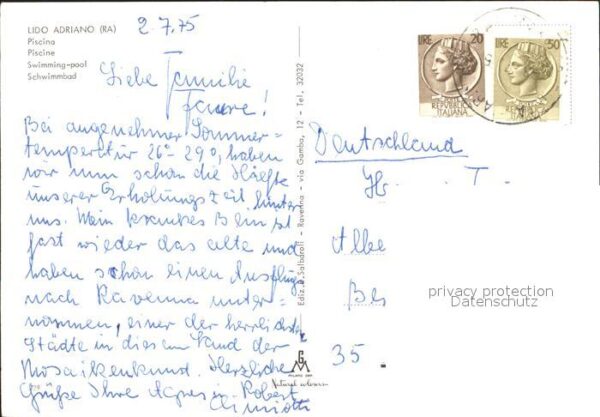 LIDO ADRIANO (RA)
Piscina
Piscine
Swimming-pool
Schwimmbad
2 7.75
LIRE 20
LIRE 50
REPUBBLICA
ITALIANA
REPUBBLICA
ITALIANA
Liebe Familie
Faure!
Bei angenehmer Sommer-
temperatur 26°-29°, haben
wir nun schon die Hälfte
unserer Erholungszeit hinter
uns. Mein krankes Bein ist
fast wieder das alte und
haben schon einen Ausflug
nach Ravenna unter-
nommen, einer der herrlichste
Städte in diesem Land der
Mosaikenkunst. Herzliche
Grüße Ihre Agnes u. Robert
Ediz. D. Salbaroli - Ravenna - via Gamba, 12 - Tel. 32032
Deutschland
T.
35.
privacy protection
Datenschutz
Natural colour